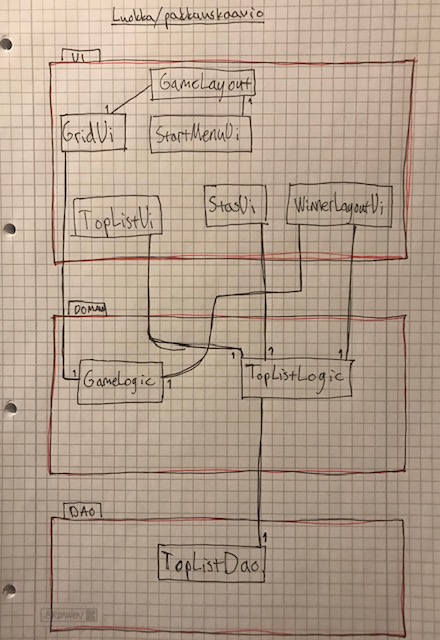 Luokka/pakkauskaavio
UI
GameLayout
1
1
GridUi
StartMenuUi
TopListUi
StasUi
WinnerLayoutUi
DOMAIN
1
1
1
1
GameLogic
1
TopListLogic
DAO
1
TopListDao